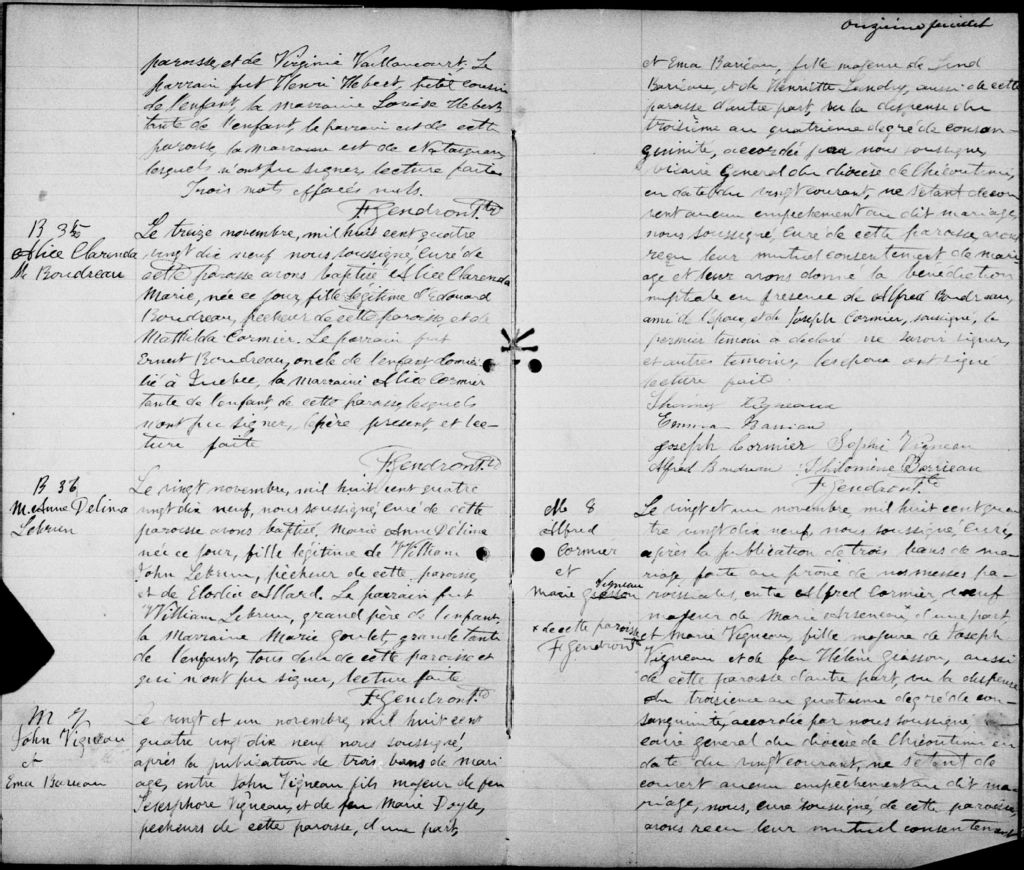 paroisse, et de Virginie Vaillancourt. Le
parrain fut Henri Hebert, petit cousin
de l'enfant, la marraine Louise Hebert
tante de l'enfant, le parrain est de cette
paroisse, la marraine est de Natasquan,
lesquels n'ont pu signer, lecture faite
Trois mots effacés nuls.
F. Gendron Ptre
B 35
Alice Clarenda
M. Boudreau
Le treize novembre, mil huit cent quatre
vingt dix neuf nous soussigné, curé de
cette paroisse avons baptisé Alice Clarenda
Marie, née ce jour, fille légitime d'Edouard
Boudreau, pêcheur de cette paroisse, et de
Mathilda Cormier. Le parrain fut
Ernest Boudreau, oncle de l'enfant, domici-
lié à Quebec, la marraine Alice Cormier
tante de l'enfant, de cette paroisse, lesquels
n'ont pu signer, le père présent, et lec-
ture faite
F. Gendron Ptre
B 36
M. Anne Delima
Lebrun
Le vingt novembre, mil huit cent quatre
vingt dix neuf, nous soussigné, curé de cette
paroisse avons baptisé, Marie Anne Délima
née ce jour, fille légitime de William
John Lebrun, pêcheur de cette paroisse,
et de Elodie Allard. Le parrain fut
William Lebrun, grand père de l'enfant,
la marraine Marie Goulet, grande tante
de l'enfant, tous deux de cette paroisse et
qui n'ont pu signer, lecture faite
F. Gendron Ptre
M 7
John Vigneau
et
Ema Barieau
Le vingt et un novembre, mil huit cent
quatre vingt dix neuf nous soussigné,
après la publication de trois bans de mari-
age, entre John Vigneau fils majeur de feu
Telesphore Vigneau, et de feu Marie Doyle,
pecheurs de cette paroisse, d'une part,
onzième feuillet
et Ema Barieau, fille majeure de
Barieau, et de Henriette Landry, aussi de cette
paroisse d'autre part, vu la dispense du
troisième au quatrième degré de consan-
guinité, accordée par nous soussigné,
vicaire General du diocèse de Chicoutimi,
en date du vingt courant, ne s'étant decou-
vert aucun empêchement au dit mariage,
nous soussigné, curé de cette paroisse, avons
reçu leur mutuel consentement de mari-
age et leur avons donné la bénédiction
nuptiale en présence de Alfred Boudreau,
ami de l'époux, et de Joseph Cormier, soussigné, le
premier temoin a déclaré ne savoir signer,
et autres temoins, les epoux ont signé
lecture faite
Vigneaux
Emma Barriau
Joseph Cormier Sophie Vigneau
Alfred Boudreau Philomène Barrieau
F. Gendron Ptre
M 8
Alfred
Cormier
et
Vigneau
Marie Giasson
x de cette paroisse
F. Gendron Ptre
Le vingt et un novembre, mil huit cent qua-
tre vingt dix neuf, nous soussigné, curé,
après la publication de trois bans de ma-
riage faite au prône de nos messes pa-
roissiales, entre Alfred Cormier, veuf
majeur de Marie Arseneau, x d'une part,
et Marie Vigneau, fille majeure de Joseph
Vigneau et de feu Hélène Giasson, aussi
de cette paroisse d'autre part, vu la dispense
du troisieme au quatrieme degré de con-
sanguinité, accordée par nous soussigné, vi-
caire general du diocèse de Chicoutimi en
date du vingt courant, ne s'étant de-
couvert aucun empêchement au dit ma-
riage, nous, curé soussigné de cette paroisse,
avons reçu leur mutuel consentement